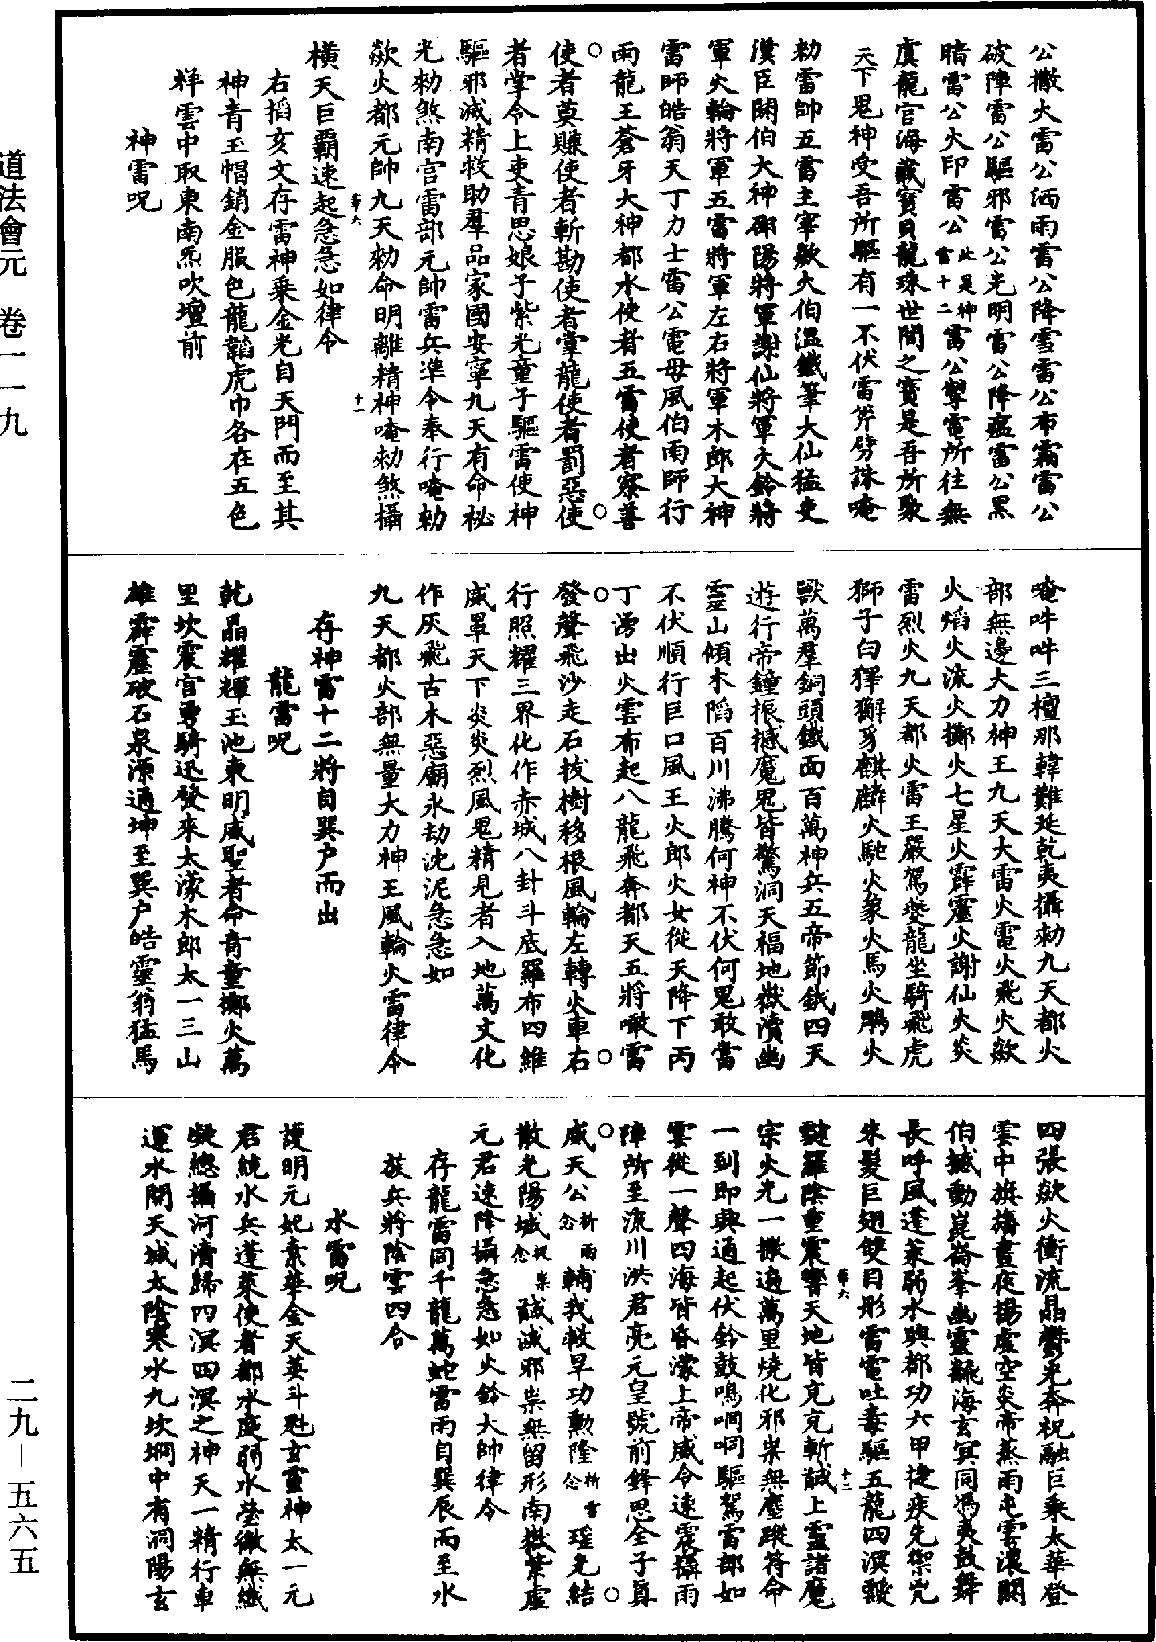 道法會元　卷一一九
公撒火雷公洒雨雷公降雪雷公布霜雷公
破陣雷公驅邪雷公光明雷公降瘟雷公黑
暗雷公火印雷公此是神雷十二雷公擊電所往無
虞龍宮海藏寶貝龍珠世間之寶是吾所聚
天下鬼神受吾所驅有一不伏雷斧劈誅唵
勑雷帥五雷主宰欻火伯溫鐵筆大仙猛吏
漢臣閼伯大神邵陽將軍謝仙將軍火鈴將
軍火輪將軍五雷將軍左右將軍木郎大神
雷師皓翁天丁力士雷公電母風伯雨師行
雨龍王蒼牙大神都水使者五雷使者察善
使者莫賺使者斬勘使者掌龍使者罰惡使
者掌令上吏青思娘子紫光童子驅雷使神
驅邪滅精救助羣品家國安寧九天有命祕
光勑煞南宮雷部元帥雷兵準令奉行唵勑
欻火都元帥九天勑命明離精神唵勑煞攝
橫天巨霸速起急急如律令
右搯亥文存雷神乘金光自天門而至其
神青玉帽銷金服色龍韜虎巾各在五色
祥雲中取東南炁吹壇前
神雷呪
唵吽吽三檀那韓難延乾夷攝勑九天都火
部無邊大力神王九天大雷火電火飛火欻
火焰火流火擲火七星火霹靂火謝仙火炎
雷烈火九天都火雷王嚴駕焚龍坐騎飛虎
獅子白犴獬豸麒麟火駝火象火馬火鵰火
獸萬羣銅頭鐵面百萬神兵五帝節鉞四天
遊行帝鐘振撼魔鬼皆驚洞天福地嶽瀆幽
靈山傾木陷百川沸騰何神不伏何鬼敢當
不伏順行巨口風王火郎火女從天降下丙
丁湧出火雲布起八龍飛奔都天五將噉雷
發聲飛沙走石拔樹移根風輪左轉火車右
行照耀三界化作赤城八卦斗底羅布四維
威罩天下炎炎烈風鬼精見者入地萬丈化
作灰飛古木惡廟永劫沈泥急急如
九天都火部無量大力神王風輪火雷律令
存神雷十二將自巽户而出
龍雷呪
乾晶耀輝玉池東明威聖者命青童擲火萬
里坎震宮勇騎迅發來太濛木郎太一三山
雄霹靂破石泉源通坤至巽户皓靈翁猛馬
四張欻火衝流晶鬱光奔祝融巨乘太華登
雲中旗旛晝夜揚虛空炎帝蒸雨屯雲濃閼
伯撼動崑崙峯幽靈翻海玄冥同馮夷鼓舞
長呼風蓬萊弱水興都功六甲捷疾先禦兇
朱髮巨翅雙目彤雷電吐毒驅五龍四溟靉
靆羅陰重震響天地皆亢亢斬馘上靈諸魔
宗火光一擲遍萬里燒化邪祟無塵蹤符命
一到即興通起伏鈴鼓鳴啊啊驅駕雷部如
雲從一聲四海皆昏濛上帝威令速震攝雨
陣所至流川洪君亮元皇號前鋒思全子真
威天公念祈雨輔我救旱功勳隆念祈雪瑤光結
散充陽城念祝祟馘滅邪祟無留形南嶽葉虛
元君速降攝急急如火鈴大帥律令
存龍雷同千龍萬蛇雷雨自巽辰而至水
族兵將陰雲四合
水雷呪
謹明元妃素華金天英斗魁玄靈神太一元
君統水兵蓬萊使者都水虔弱水瑩徹無纖
凝總攝河清歸四溟四溟之神天一精行車
運水開天城太陰寒水九坎垌中有洞陽玄
二九—五六五